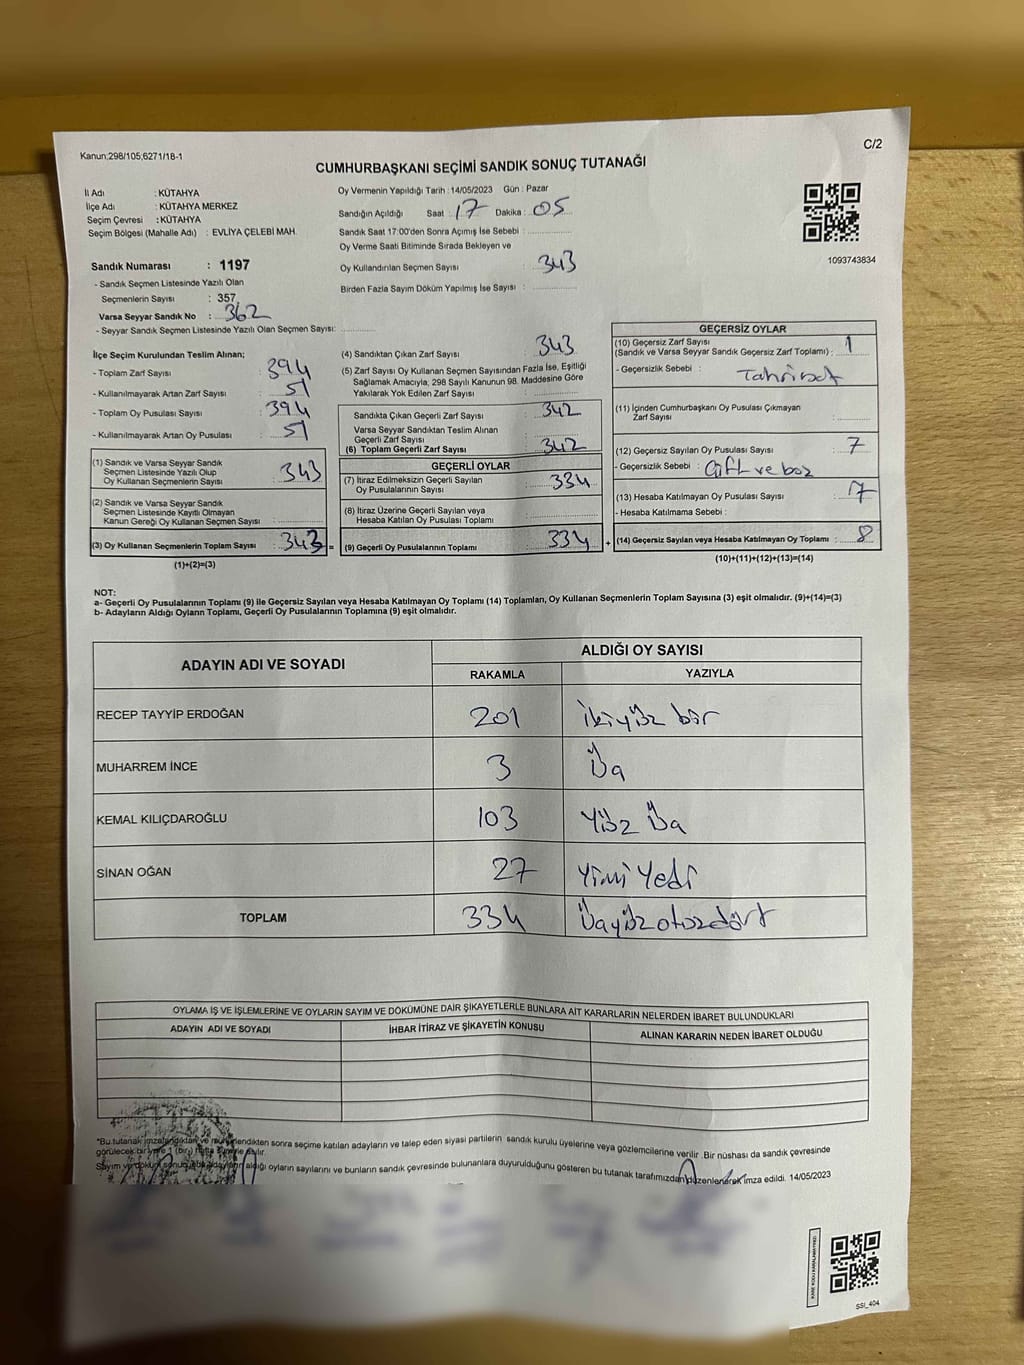 Kanun;298/105,6271/18-1
C/2
CUMHURBAŞKANI SEÇİMİ SANDIK SONUÇ TUTANAĞI
İl Adı : KÜTAHYA
İlçe Adı : KÜTAHYA MERKEZ
Seçim Çevresi : KÜTAHYA
Seçim Bölgesi (Mahalle Adı) : EVLİYA ÇELEBİ MAH.
Oy Vermenin Yapıldığı Tarih : 14/05/2023 Gün : Pazar
Sandığın Açıldığı Saat : 17 Dakika : 05
Sandık Saat 17:00'den Sonra Açımış İse Sebebi :
Oy Verme Saati Bitiminde Sırada Bekleyen ve
Oy Kullandırılan Seçmen Sayısı : 343
Birden Fazla Sayım Döküm Yapılmış İse Sayısı :
1093743834
Sandık Numarası : 1197
- Sandık Seçmen Listesinde Yazılı Olan
Seçmenlerin Sayısı : 357
Varsa Seyyar Sandık No : 362
- Seyyar Sandık Seçmen Listesinde Yazılı Olan Seçmen Sayısı:
İlçe Seçim Kurulundan Teslim Alınan;
- Toplam Zarf Sayısı : 394
- Kullanılmayarak Artan Zarf Sayısı : 51
- Toplam Oy Pusulası Sayısı : 394
- Kullanılmayarak Artan Oy Pusulası : 51
(1) Sandık ve Varsa Seyyar Sandık
Seçmen Listesinde Yazılı Olup
Oy Kullanan Seçmenlerin Sayısı : 343
(2) Sandık ve Varsa Seyyar Sandık
Seçmen Listesinde Kayıtlı Olmayan
Kanun Gereği Oy Kullanan Seçmen Sayısı :
(3) Oy Kullanan Seçmenlerin Toplam Sayısı : 343 =
(1)+(2)=(3)
(4) Sandıktan Çıkan Zarf Sayısı : 343
(5) Zarf Sayısı Oy Kullanan Seçmen Sayısından Fazla İse, Eşitliği
Sağlamak Amacıyla, 298 Sayılı Kanunun 98. Maddesine Göre
Yakılarak Yok Edilen Zarf Sayısı :
Sandıkta Çıkan Geçerli Zarf Sayısı : 342
Varsa Seyyar Sandıktan Teslim Alınan
Geçerli Zarf Sayısı :
(6) Toplam Geçerli Zarf Sayısı : 342
GEÇERLİ OYLAR
(7) İtiraz Edilmeksizin Geçerli Sayılan
Oy Pusulalarının Sayısı : 334
(8) İtiraz Üzerine Geçerli Sayılan veya
Hesaba Katılan Oy Pusulası Toplamı :
(9) Geçerli Oy Pusulalarının Toplamı : 334 +
GEÇERSİZ OYLAR
(10) Geçersiz Zarf Sayısı
(Sandık ve Varsa Seyyar Sandık Geçersiz Zarf Toplamı) : 1
- Geçersizlik Sebebi : Tahribat
(11) İçinden Cumhurbaşkanı Oy Pusulası Çıkmayan
Zarf Sayısı :
(12) Geçersiz Sayılan Oy Pusulası Sayısı : 7
- Geçersizlik Sebebi : Çift ve boz
(13) Hesaba Katılmayan Oy Pusulası Sayısı :
- Hesaba Katılmama Sebebi :
(14) Geçersiz Sayılan veya Hesaba Katılmayan Oy Toplamı : 8
(10)+(11)+(12)+(13)=(14)
NOT:
a- Geçerli Oy Pusulalarının Toplamı (9) ile Geçersiz Sayılan veya Hesaba Katılmayan Oy Toplamı (14) Toplamları, Oy Kullanan Seçmenlerin Toplam Sayısına (3) eşit olmalıdır. (9)+(14)=(3)
b- Adayların Aldığı Oyların Toplamı, Geçerli Oy Pusulalarının Toplamına (9) eşit olmalıdır.
ADAYIN ADI VE SOYADI
ALDIĞI OY SAYISI
RAKAMLA YAZIYLA
RECEP TAYYİP ERDOĞAN 201 ikiyüz bir
MUHARREM İNCE 3 Üç
KEMAL KILIÇDAROĞLU 103 Yüz Üç
SİNAN OĞAN 27 Yirmi Yedi
TOPLAM 334 Üçyüzotuzdört
OYLAMA İŞ VE İŞLEMLERİNE VE OYLARIN SAYIM VE DÖKÜMÜNE DAİR ŞİKAYETLERLE BUNLARA AİT KARARLARIN NELERDEN İBARET BULUNDUKLARI
ADAYIN ADI VE SOYADI İHBAR İTİRAZ VE ŞİKAYETİN KONUSU ALINAN KARARIN NEDEN İBARET OLDUĞU
*Bu tutanak imzalandıktan ve mühürlendikten sonra seçime katılan adayların ve talep eden siyasi partilerin sandık kurulu üyelerine veya gözlemcilerine verilir .Bir nüshası da sandık çevresinde
görülecek bir yere 1 (bir) hafta süreyle asılır.
aldığı oyların sayılarını ve bunların sandık çevresinde bulunanlara duyurulduğunu gösteren bu tutanak tarafımızdan düzenlenerek imza edildi. 14/05/2023
SSI_404